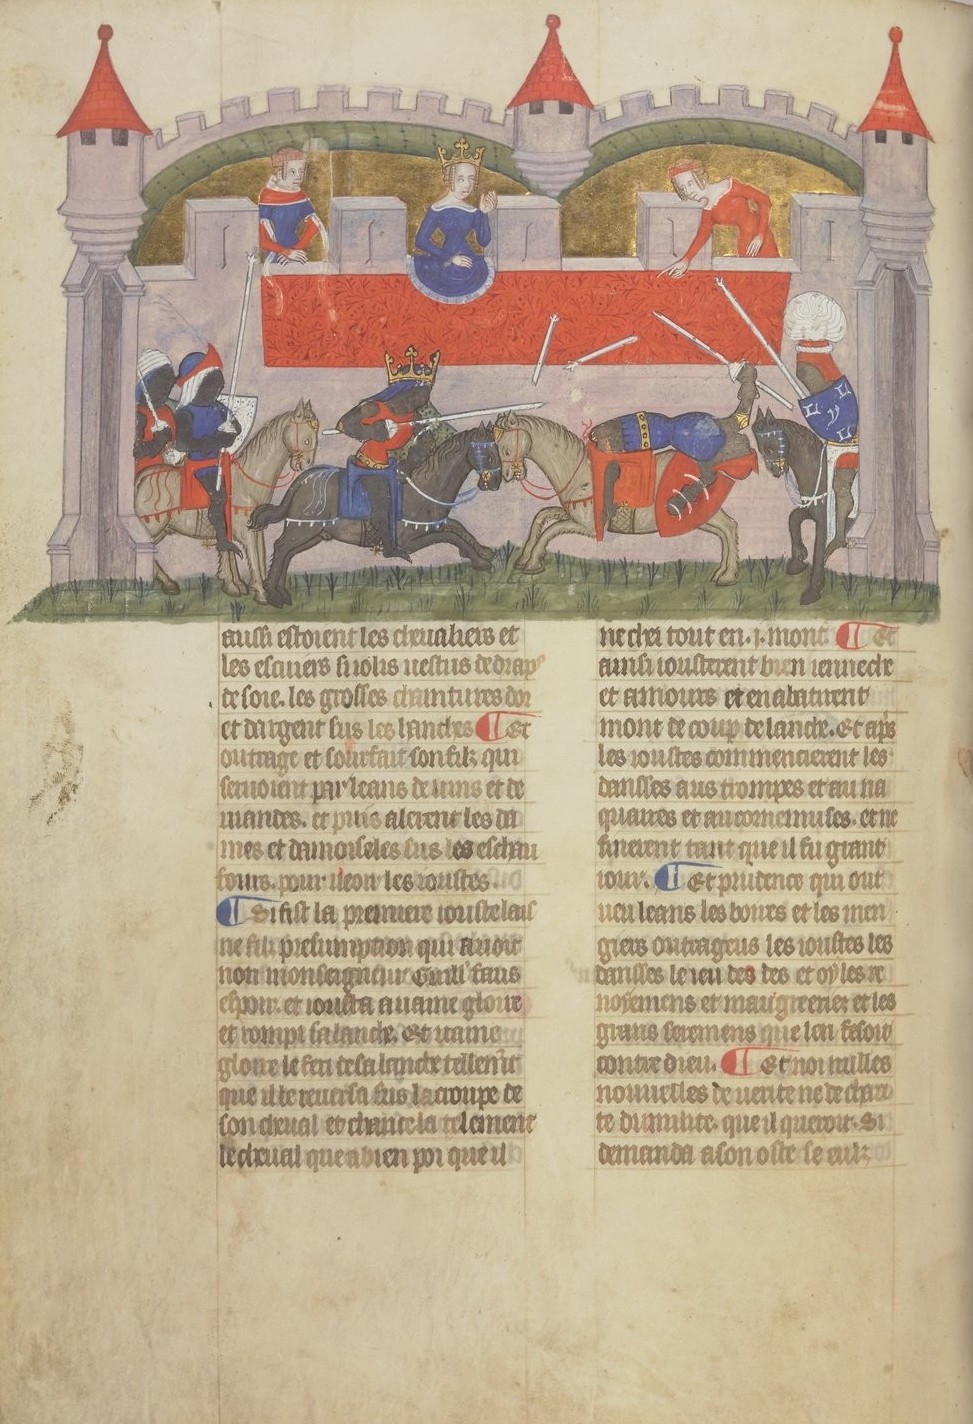 aussi estoient les cheualiers et
les escuiers si iolis uestus de draps
de soie. les grosses chaintures dor
et dargent sus les lanches ¶ Et
outrage et sourfait son filz qui
seruoient par leans de uins et de
uiandes. et puis alerent les da
mes et damoiseles sus les eschau
fours. pour ueoir les ioustes.
¶ Si fist la premiere iouste lais
ne fil presumption qui auoit
non monseigneur Guill' faus
espoir. et iousta a uaine gloire
et rompi sa lanche. Et uaine
gloire le feri de sa lanche tellemt
que il le reuersa sus la croupe de
son cheual et chancela telement
le cheual que a bien poi que il
ne chei tout en .j. mont ¶ Et
ainsi iousterent bien iennece
et amours et en abatirent
mont de coup de lanche. Et aps
les ioustes commencierent les
dansses aus trompes et au na
quaires et au cornemuses. et ne
finerent tant que il fu grant
iour. ¶ Et prudence qui out
ueu leans les boires et les men
giers outrageus les ioustes les
dansses le ieu des des et oy les re
noiemens et maugreeries et les
grans seremens que len fesoit
contre dieu. ¶ Et noi nulles
nouuelles de uerite ne de chari
te dumilite. que il queroit. Si
demanda a son oste se eulz